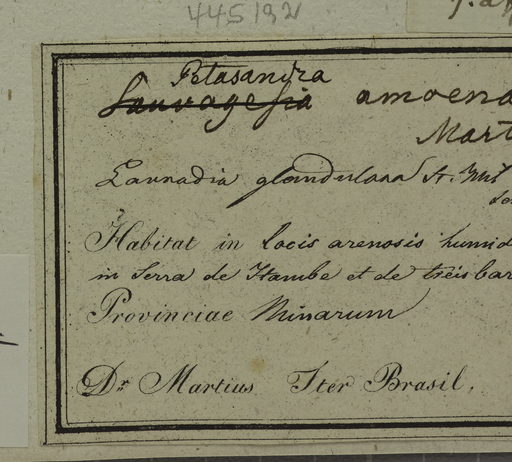 445192
Petasandra
Sauvagesia amoena
Mart
Lavradia glandulosa St. Hil
Habitat in locis arenosis humid
in Serra de Itambe et de
Provinciae Minarum
Dr. Martius Iter Brasil.